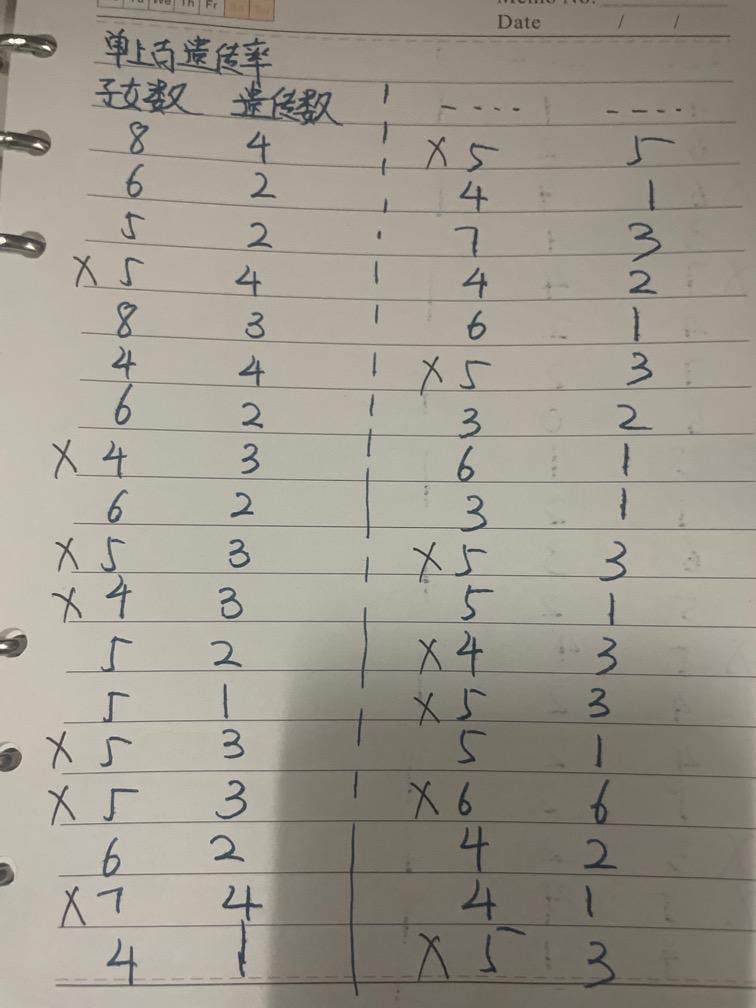 We Th Fr
Memo No.
Date / /
单上古遗传率
子女数 遗传数 ---- ----
8 4 X 5 5
6 2 4 1
5 2 7 3
X 5 4 4 2
8 3 6 1
4 4 X 5 3
6 2 3 2
X 4 3 6 1
6 2 3 1
X 5 3 X 5 3
X 4 3 5 1
5 2 X 4 3
5 1 X 5 3
X 5 3 5 1
X 5 3 X 6 6
6 2 4 2
X 7 4 4 1
4 1 X 5 3